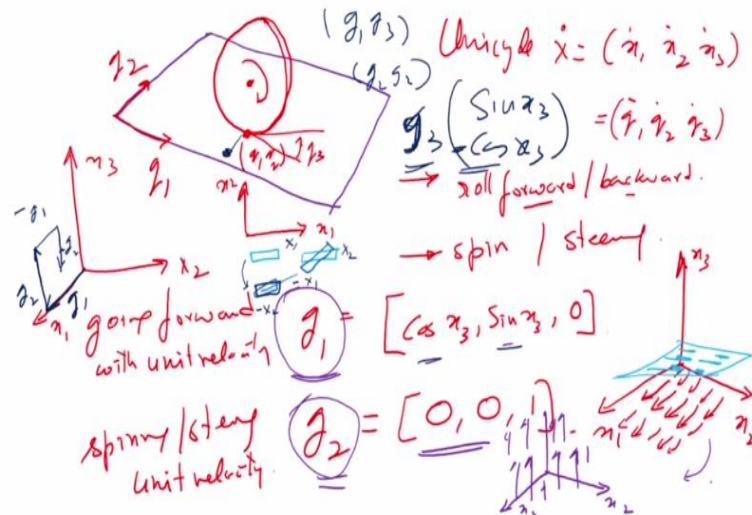 (g₁ g₃)
(g₂ g₂)
Unicycle ẋ = (ẋ₁ ẋ₂ ẋ₃)
= (q̇₁ q̇₂ q̇₃)
g₃ ( Sin x₃
-Cos x₃ )
q₂
q₁
(q₁, q₂)
q₃
→ roll forward / backward.
→ spin / steeng
x₃
x₂
x₁
-g₁
g₂
g₂
g₁
x₂
x₁
x₁
x₂
-x₁
-x₂
going forward
with unit velocity
g₁ = [Cos x₃, Sin x₃, 0]
spinng / steeng
unit velocity.
g₂ = [0, 0, 1]
x₃
x₁
x₂
x₁
x₂